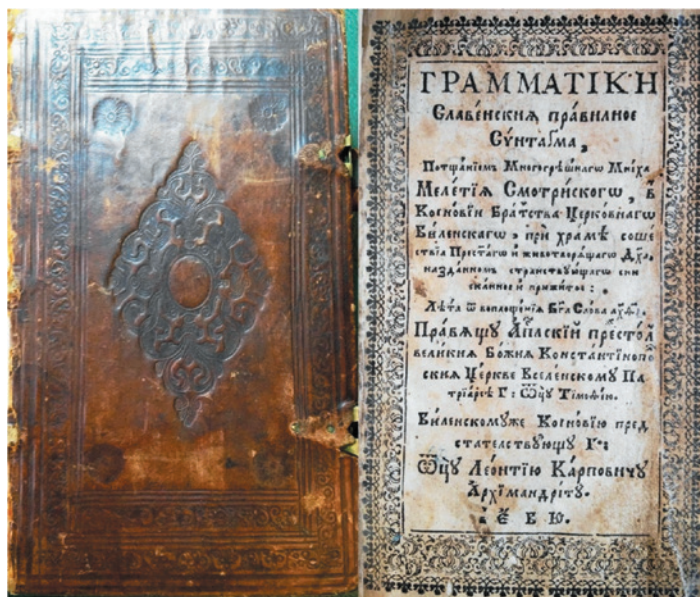 ГРАММАТІКИ
Славе́нскиѧ пра́вилное
Сѵ́нтаґма,
Потща́нїемъ Многогрѣ́шнагѡ Мни́ха
Меле́тїѧ Смотри́скогѡ, в̾
Коено́вїи Бра́тства Церко́внагѡ
Ви́ленскагѡ, при́ хра́мѣ соше́
ствїѧ Прест҃а́гѡ и҆ животворѧ́щагѡ Дх҃а,
назда́нномъ стра́нствꙋющагѡ сни
ска́нное и҆ прижи́тое :
Лѣ́та ѿ воплоще́нїѧ Бг҃а Сло́ва
Пра́вѧщꙋ А҆пⷭ҇лскїй престо́лъ
вели́киѧ Бо́жїѧ Константїнопо́
скиѧ Це́ркве Вселе́нскомꙋ Па
трїа́рсѣ Г: Ѻ҆тцꙋ̀ Тїмоѳе́ю.
Ви́ленскомꙋже Коено́вїю пред
ста́телствꙋющꙋ Г:
Ѻ҆тцꙋ̀ Лео́нтїю Ка́рповичꙋ
А҆рхїмандри́тꙋ.
в̾ Е҆́вю.